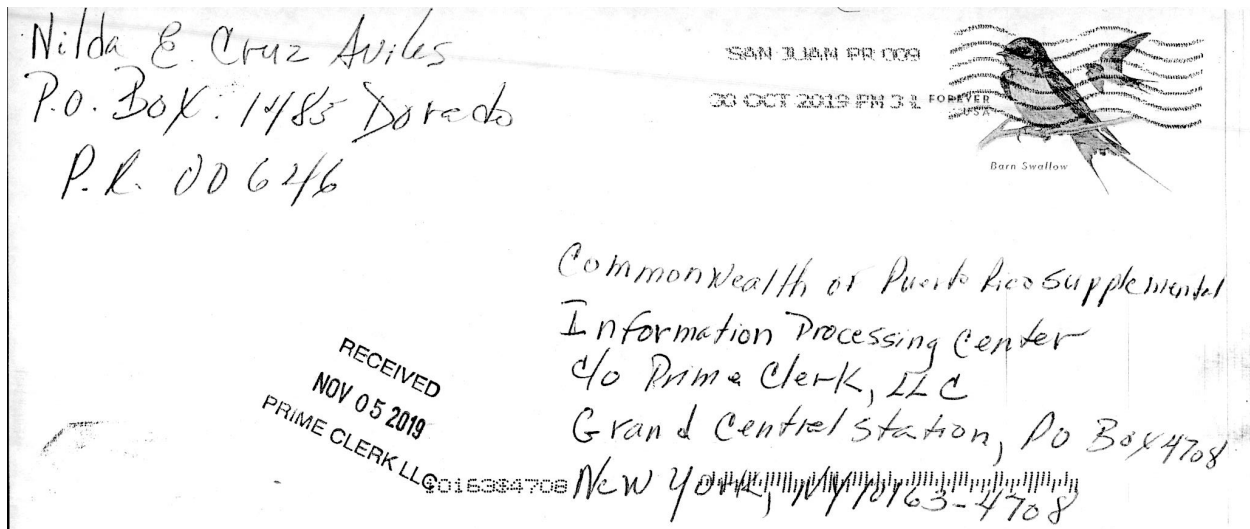 Nilda E. Cruz Aviles
P.O. Box. 1485 Dorado
P.R. 00646
SAN JUAN PR 009
30 OCT 2019 PM 3 L
FOREVER
USA
Barn Swallow
Commonwealth of Puerto Rico Supplemental
Information Processing Center
c/o Prime Clerk, LLC
Grand Central Station, PO Box 4708
New York, NY 10163-4708
RECEIVED
NOV 05 2019
PRIME CLERK LLC
10163$4708